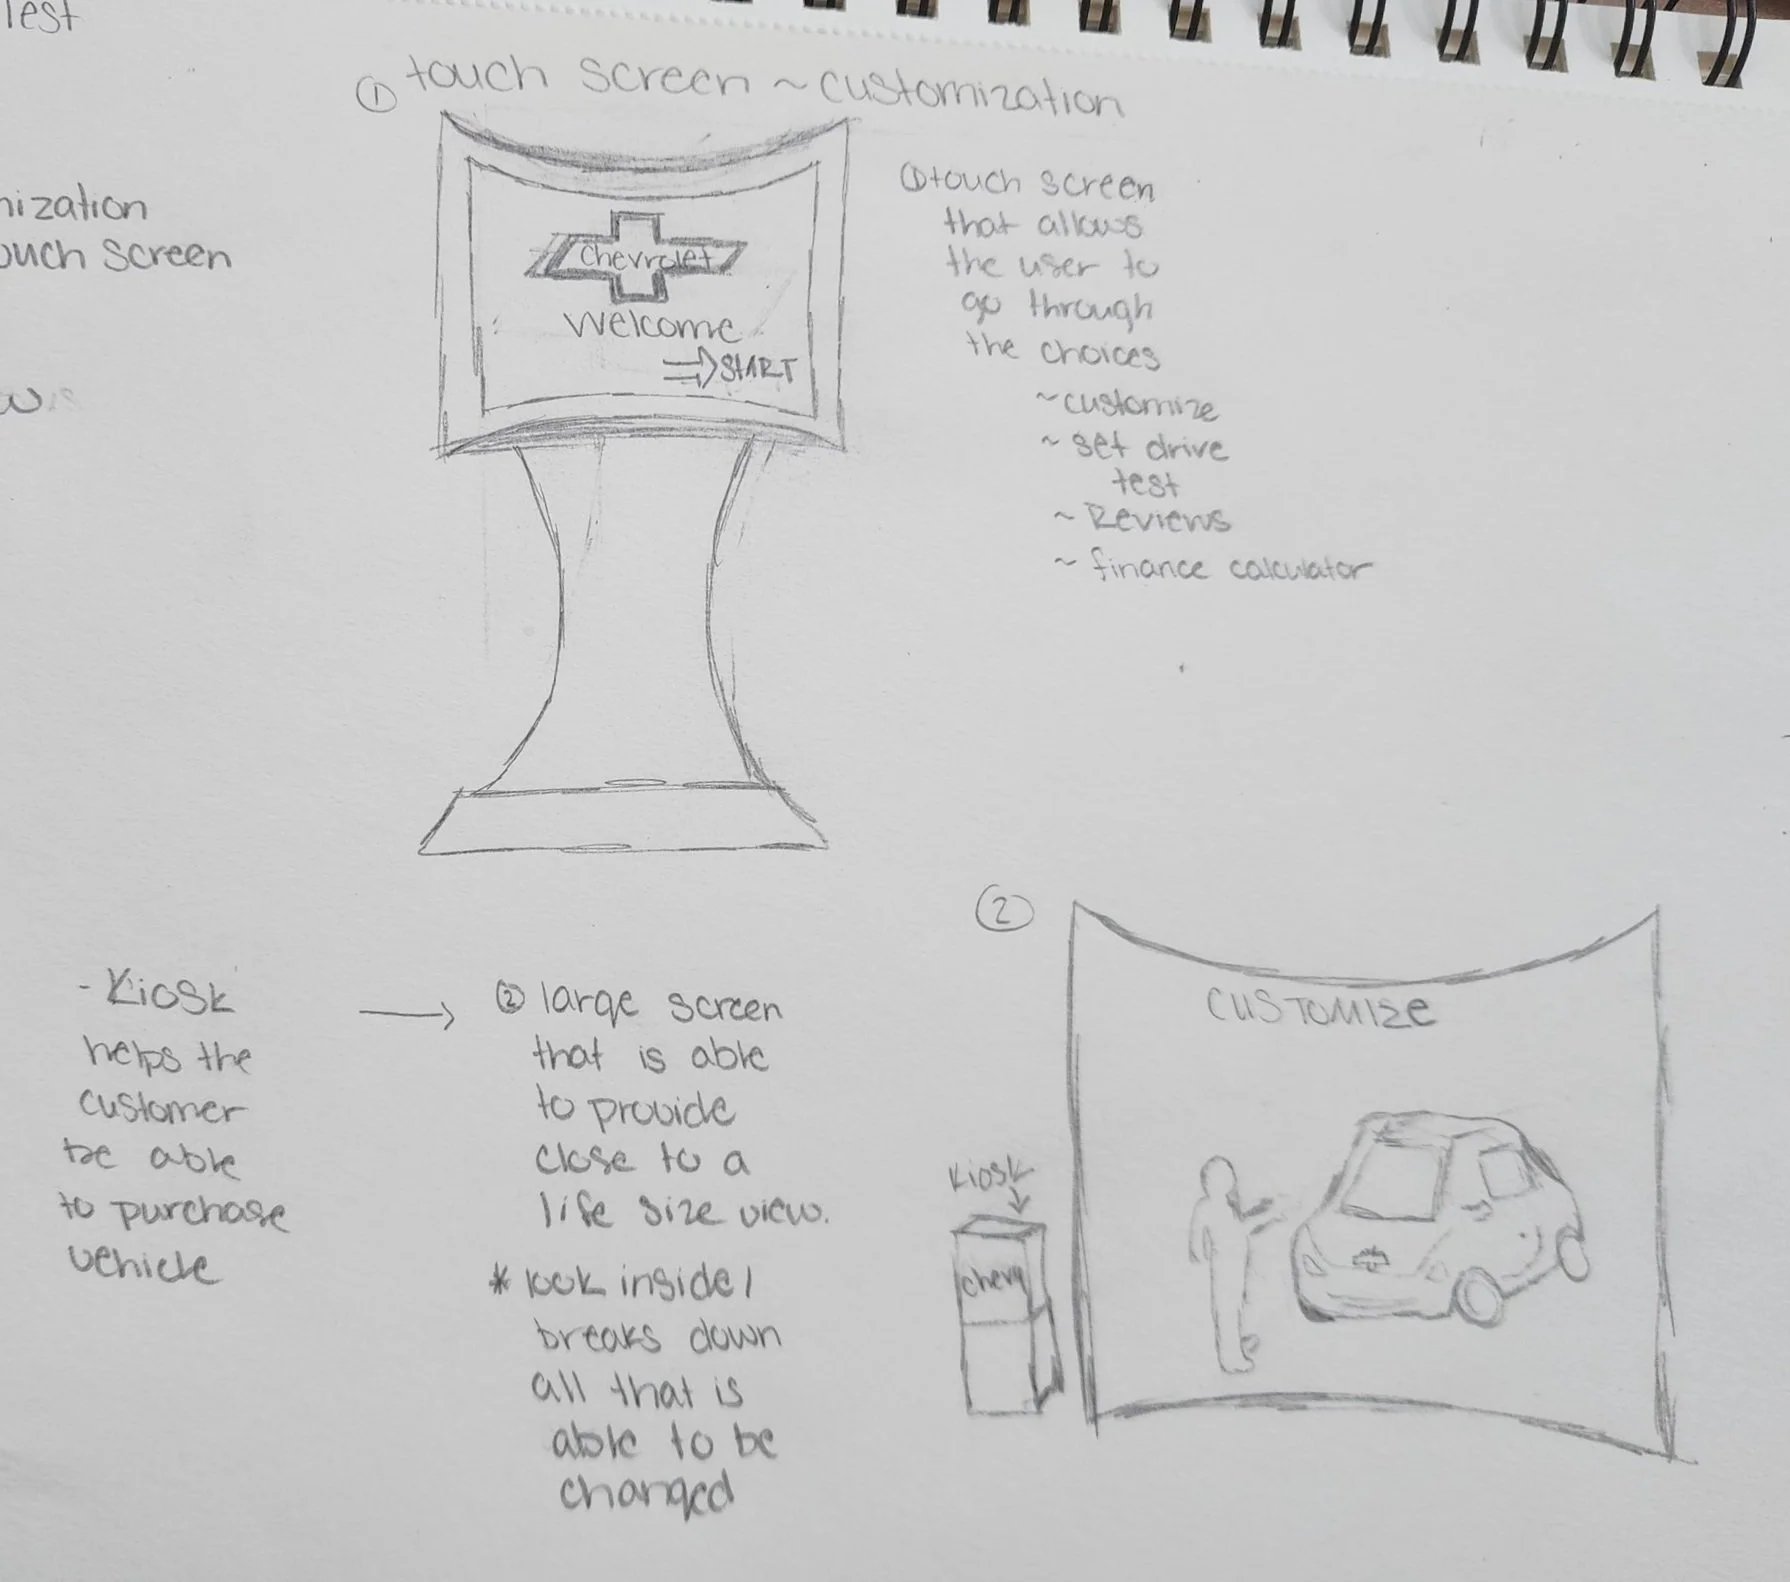 Test
nization
ouch screen
① touch screen ~ customization
Chevrolet
Welcome
⇒ START
① touch screen
that allows
the user to
go through
the choices
~ customize
~ set drive
test
~ Reviews
~ finance calculator
- Kiosk
helps the
customer
be able
to purchase
vehicle
→
② large screen
that is able
to provide
close to a
life size view.
* look inside/
breaks down
all that is
able to be
changed
②
CUSTOMIZE
Kiosk
chevy